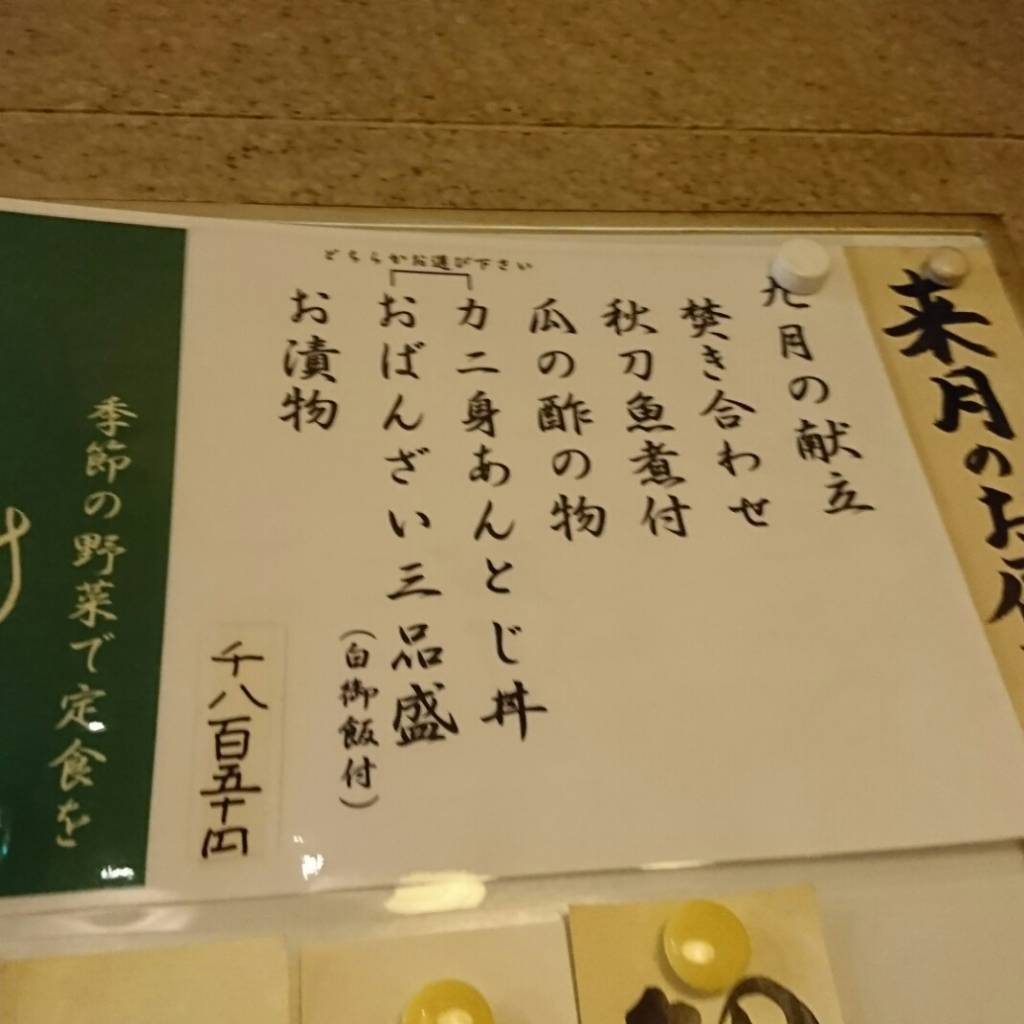 来月のお
九月の献立
焚き合わせ
秋刀魚煮付
瓜の酢の物
どちらかお選び下さい
カニ身あんとじ丼
おばんざい三品盛
(白御飯付)
お漬物
千八百五十円
季節の野菜で定食を